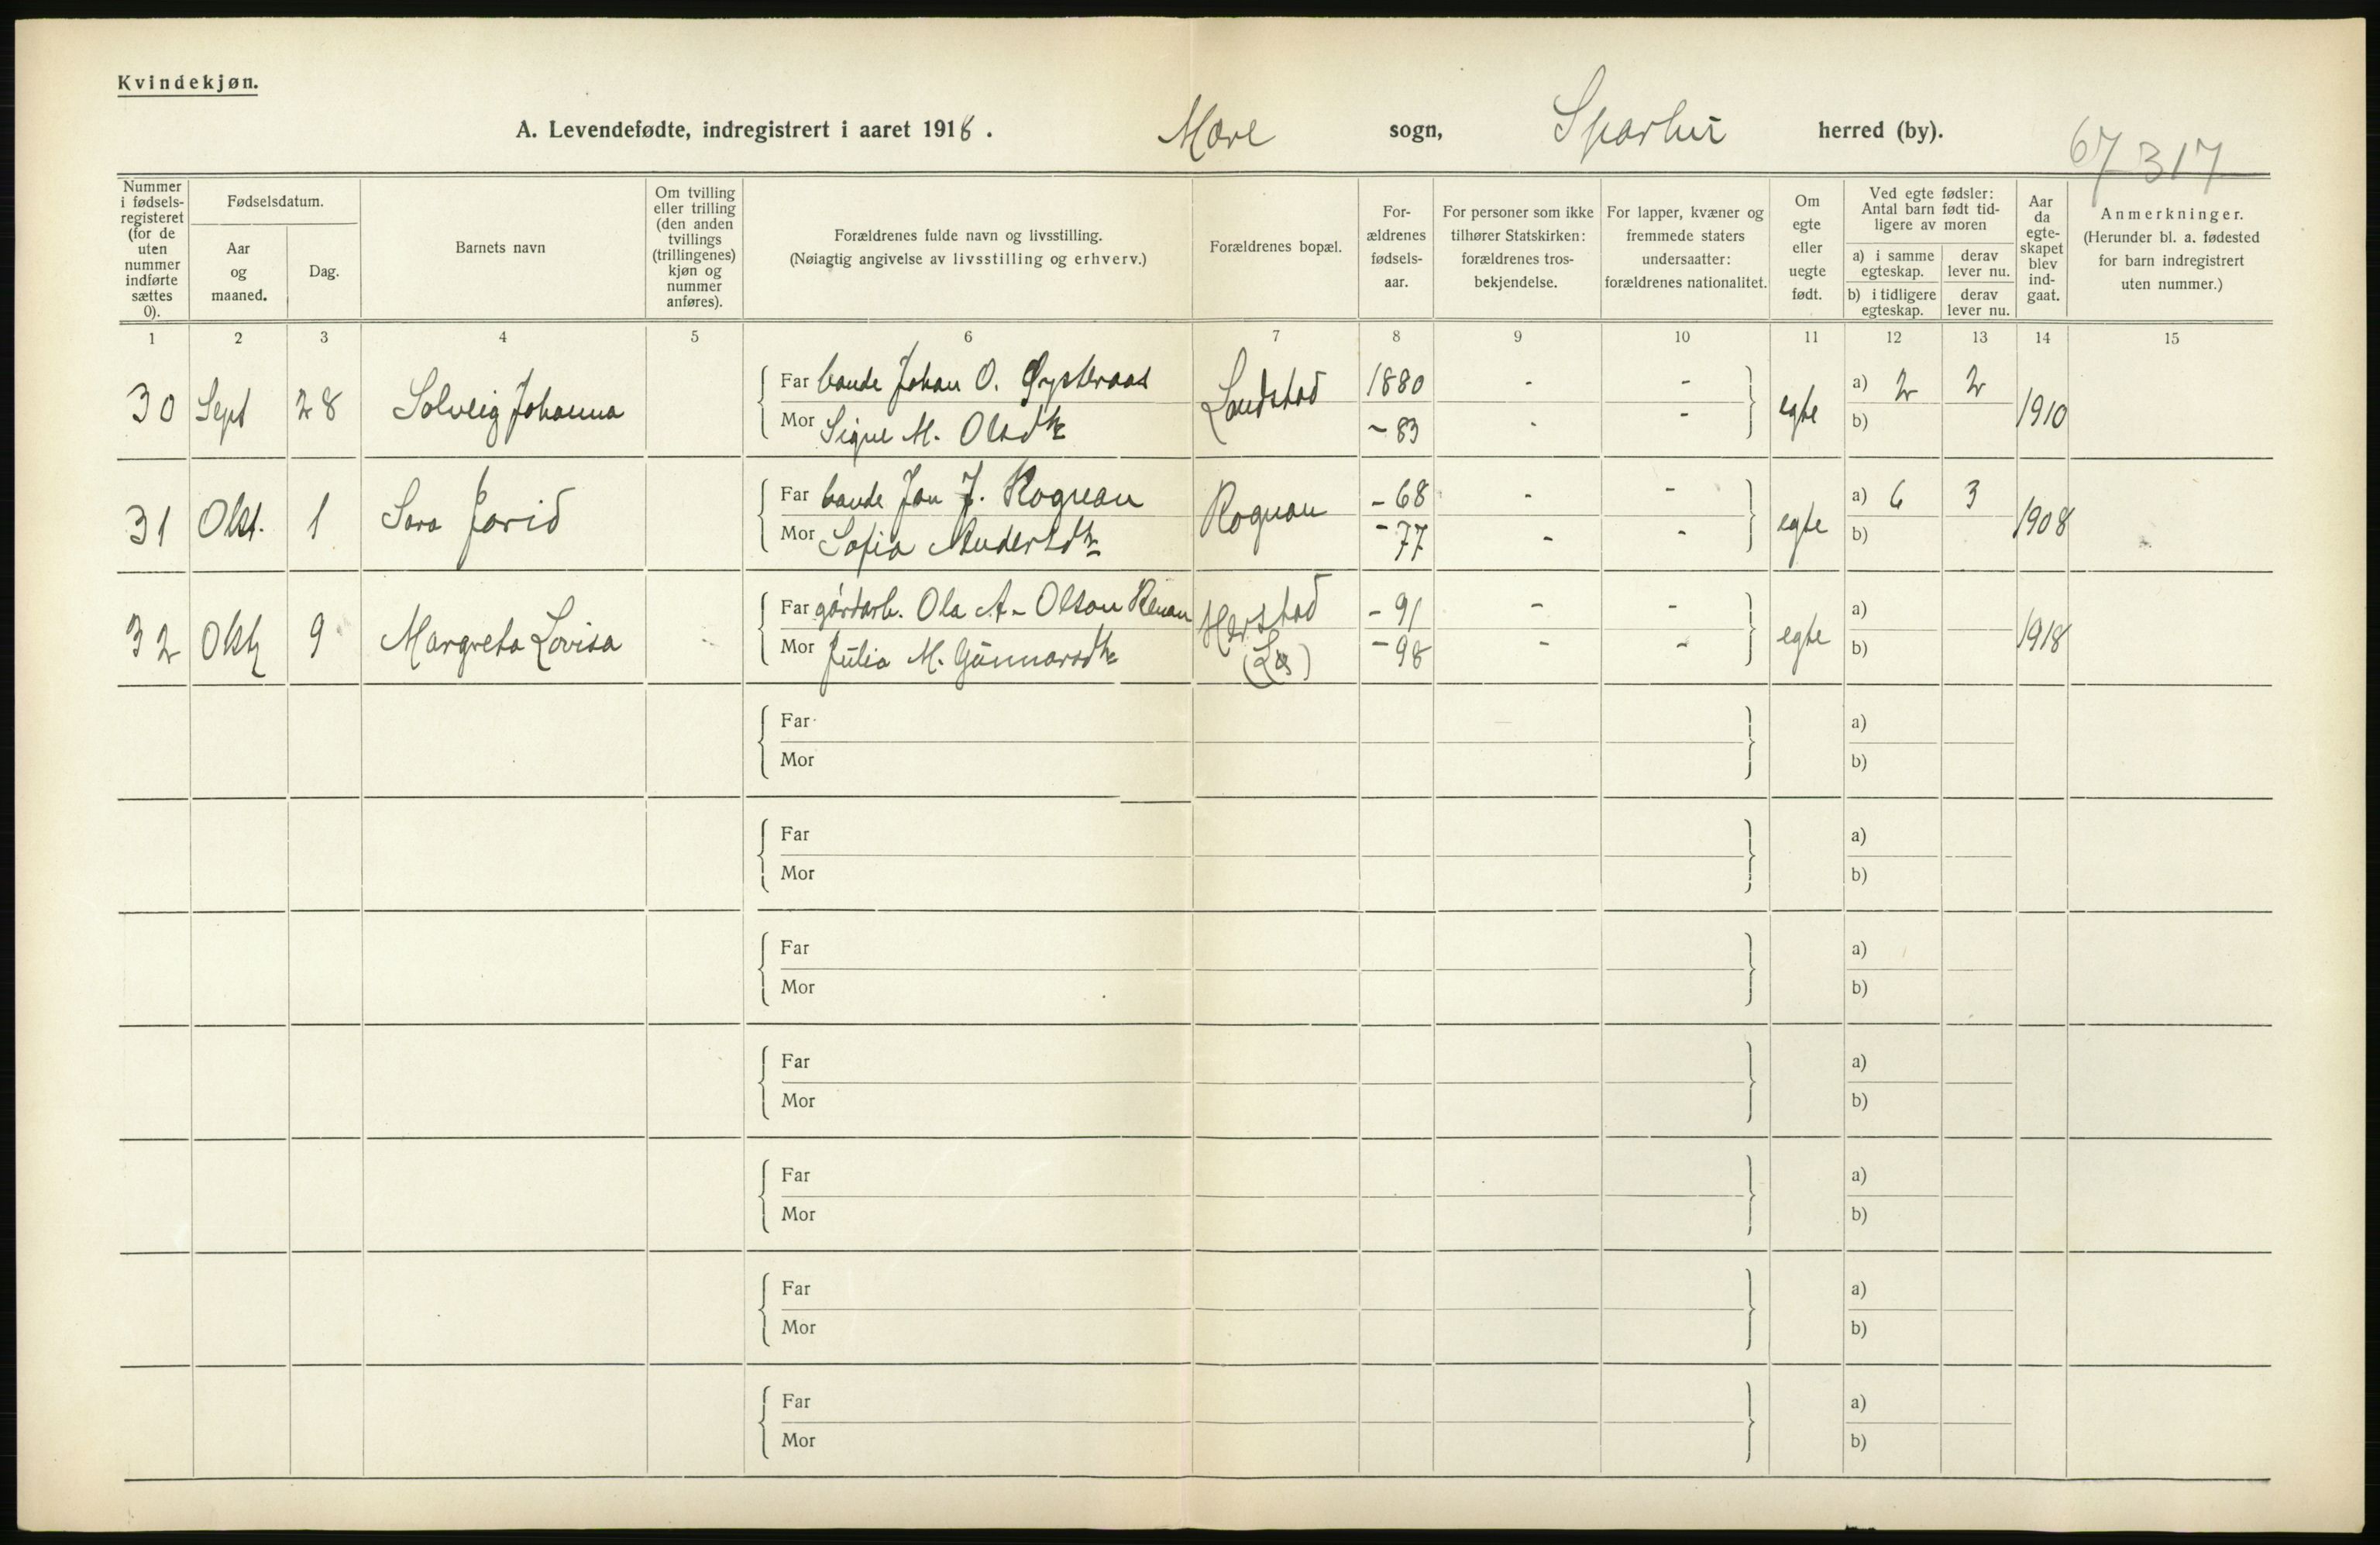 Kvindekjøn.
A. Levendefødte, indregistrert i aaret 1918. Mære sogn, Sparbu herred (by).
67317
Nummer i fødsels-registeret (for de uten nummer indførte sættes 0).
Fødselsdatum.
Aar og maaned.
Dag.
Barnets navn
Om tvilling eller trilling (den anden tvillings (trillingenes) kjøn og nummer anføres).
Forældrenes fulde navn og livsstilling.
(Nøiagtig angivelse av livsstilling og erhverv.)
Forældrenes bopæl.
For-ældrenes fødsels-aar.
For personer som ikke tilhører Statskirken: forældrenes tros-bekjendelse.
For lapper, kvæner og fremmede staters undersaatter: forældrenes nationalitet.
Om egte eller uegte født.
Ved egte fødsler: Antal barn født tid-ligere av moren
a) i samme egteskap.
derav lever nu.
b) i tidligere egteskap.
derav lever nu.
Aar da egte-skapet blev ind-gaat.
Anmerkninger.
(Herunder bl. a. fødested for barn indregistrert uten nummer.)
1 2 3 4 5 6 7 8 9 10 11 12 13 14 15
30 Sept 28 Solveig Johanna Far bonde Johan O. Øysteraas Landstad 1880 - - egte a) 2 2 1910
Mor Signe M. Olsdtr - 83 - - b)
31 Okt. 1 Sara Jorid Far bonde Jon J. Rognan Rognan - 68 - - egte a) 6 3 1908
Mor Sofia Andersdtr - 77 - - b)
32 Okt 9 Margreta Lovisa Far gårdarb. Ola A. Olson Renan - 91 - - egte a) 1918
Mor Julia M. Gunnarsdtr - 98 - - b)
Far a)
Mor b)
Far a)
Mor b)
Far a)
Mor b)
Far a)
Mor b)
Far a)
Mor b)
Far a)
Mor b)
Far a)
Mor b)